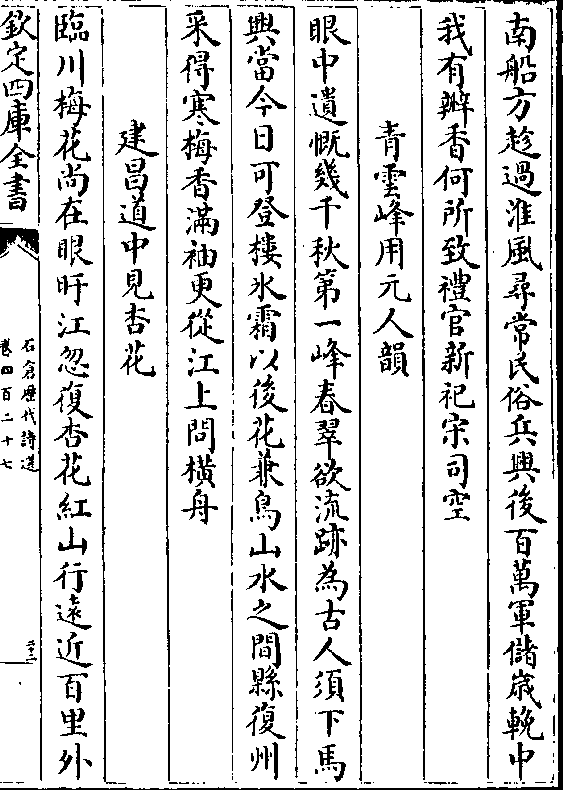 南船方趁過淮風尋常民俗兵興後百萬軍儲歳輓中
我有瓣香何所致禮官新祀宋司空
青雲峰用元人韻
眼中遺慨幾千秋第一峰春翠欲流跡為古人須下馬
興當今日可登樓氷霜以後花兼鳥山水之間縣復州
采得寒梅香滿袖更從江上問橫舟
建昌道中見杏花
臨川梅花尚在眼盱江忽復杏花紅山行遠近百里外
欽定四庫全書
石倉歴代詩選
卷四百二十七